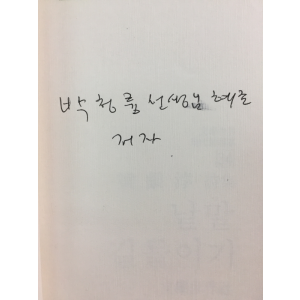 박청룡 선생님 혜존
저자